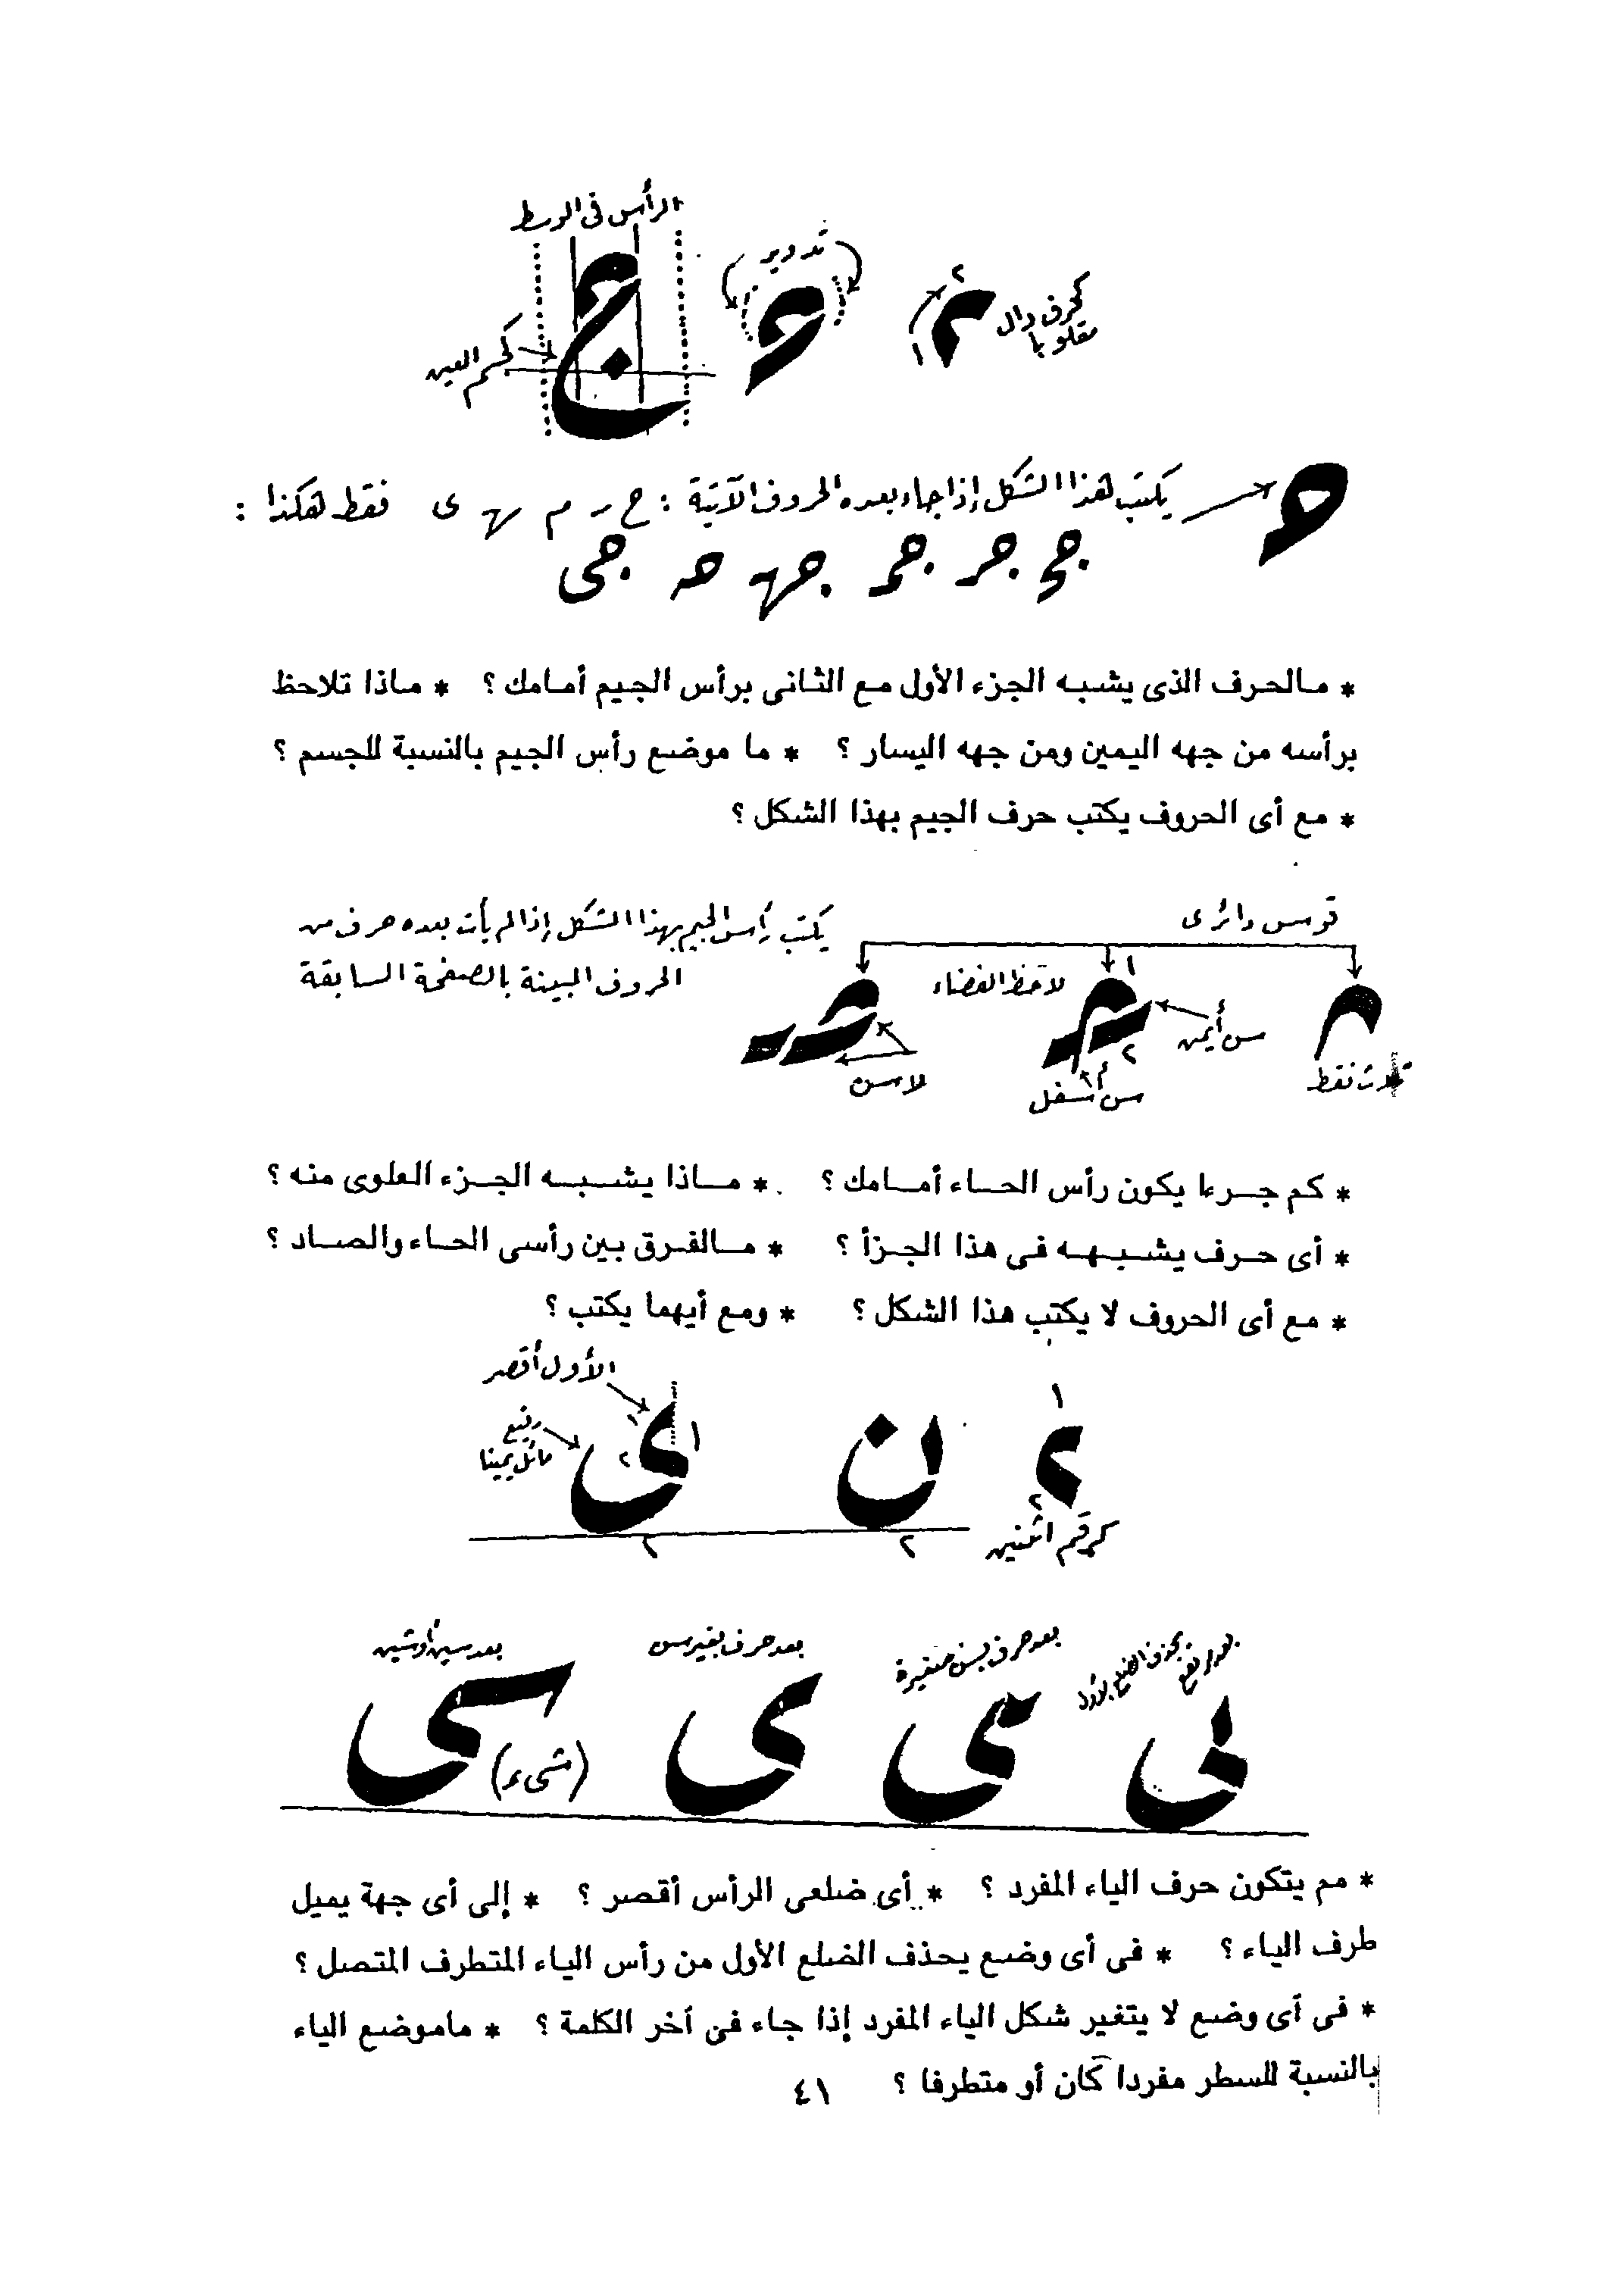 الرأس فى الوسط
تدوير
كحرف دال
مقلوبا
٢
١
ج
كجسم العين
يكتب هذا الشكل إذا جاء بعده الحروف الآتية : ح ر م ى فقط هكذا :
* مالحرف الذى يشبه الجزء الأول مع الثانى برأس الجيم أمامك ؟ * ماذا تلاحظ
برأسه من جهه اليمين ومن جهه اليسار ؟ * ما موضع رأس الجيم بالنسبة للجسم ؟
* مع أى الحروف يكتب حرف الجيم بهذا الشكل ؟
قوس دائرى
يكتب رأس الجيم بهذا الشكل إذا لم يأت بعده حرف من
الحروف المبينة بالصفحة السابقة
لاحظ الفضاء
١
سن أيمن
٢
ثلاث نقط
سن أسفل
لا سن
* كم جرءا يكون رأس الحاء أمامك ؟ * ماذا يشبه الجزء العلوى منه ؟
* أى حرف يشبهه فى هذا الجزأ ؟ * مالفرق بين رأسى الحاء والصاد ؟
* مع أى الحروف لا يكتب هذا الشكل ؟ * ومع أيهما يكتب ؟
الأول أقصر
١
رفيع
مائل يمينا
ن ى
١ ٢
٢
كرقم اثنين
٢ ٢
بعد حرف بسن صغيرة
بعد حرف بغير سن
بعد سين أو شين
ى
(شىء)
* مم يتكون حرف الياء المفرد ؟ * أى ضلعى الرأس أقصر ؟ * إلى أى جهة يميل
طرف الياء ؟ * فى أى وضع يحذف الضلع الأول من رأس الياء المتطرف المتصل ؟
* فى أى وضع لا يتغير شكل الياء المفرد إذا جاء فى آخر الكلمة ؟ * ماموضع الياء
بالنسبة للسطر مفردا كان أو متطرفا ؟
٤١